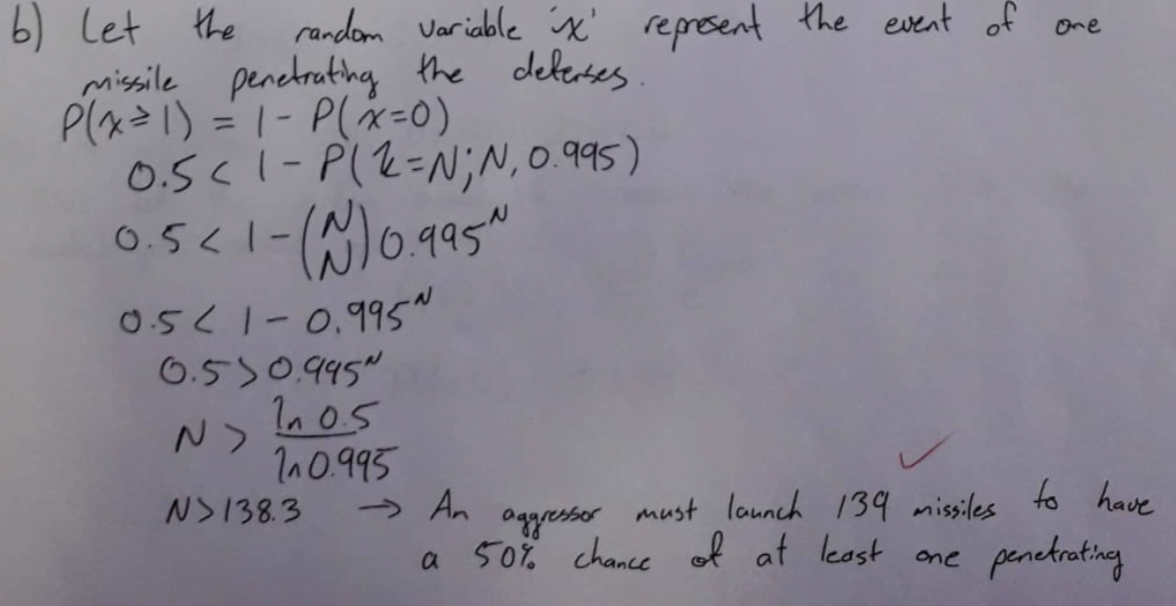 b) Let the random variable 'x' represent the event of one
missile penetrating the defenses.
P(x≥1) = 1 - P(x=0)
0.5 < 1 - P(k=N; N, 0.995)
0.5 < 1 - (N N) 0.995^N
0.5 < 1 - 0.995^N
0.5 > 0.995^N
N > ln 0.5 / ln 0.995
N > 138.3 → An aggressor must launch 139 missiles to have
a 50% chance of at least one penetrating